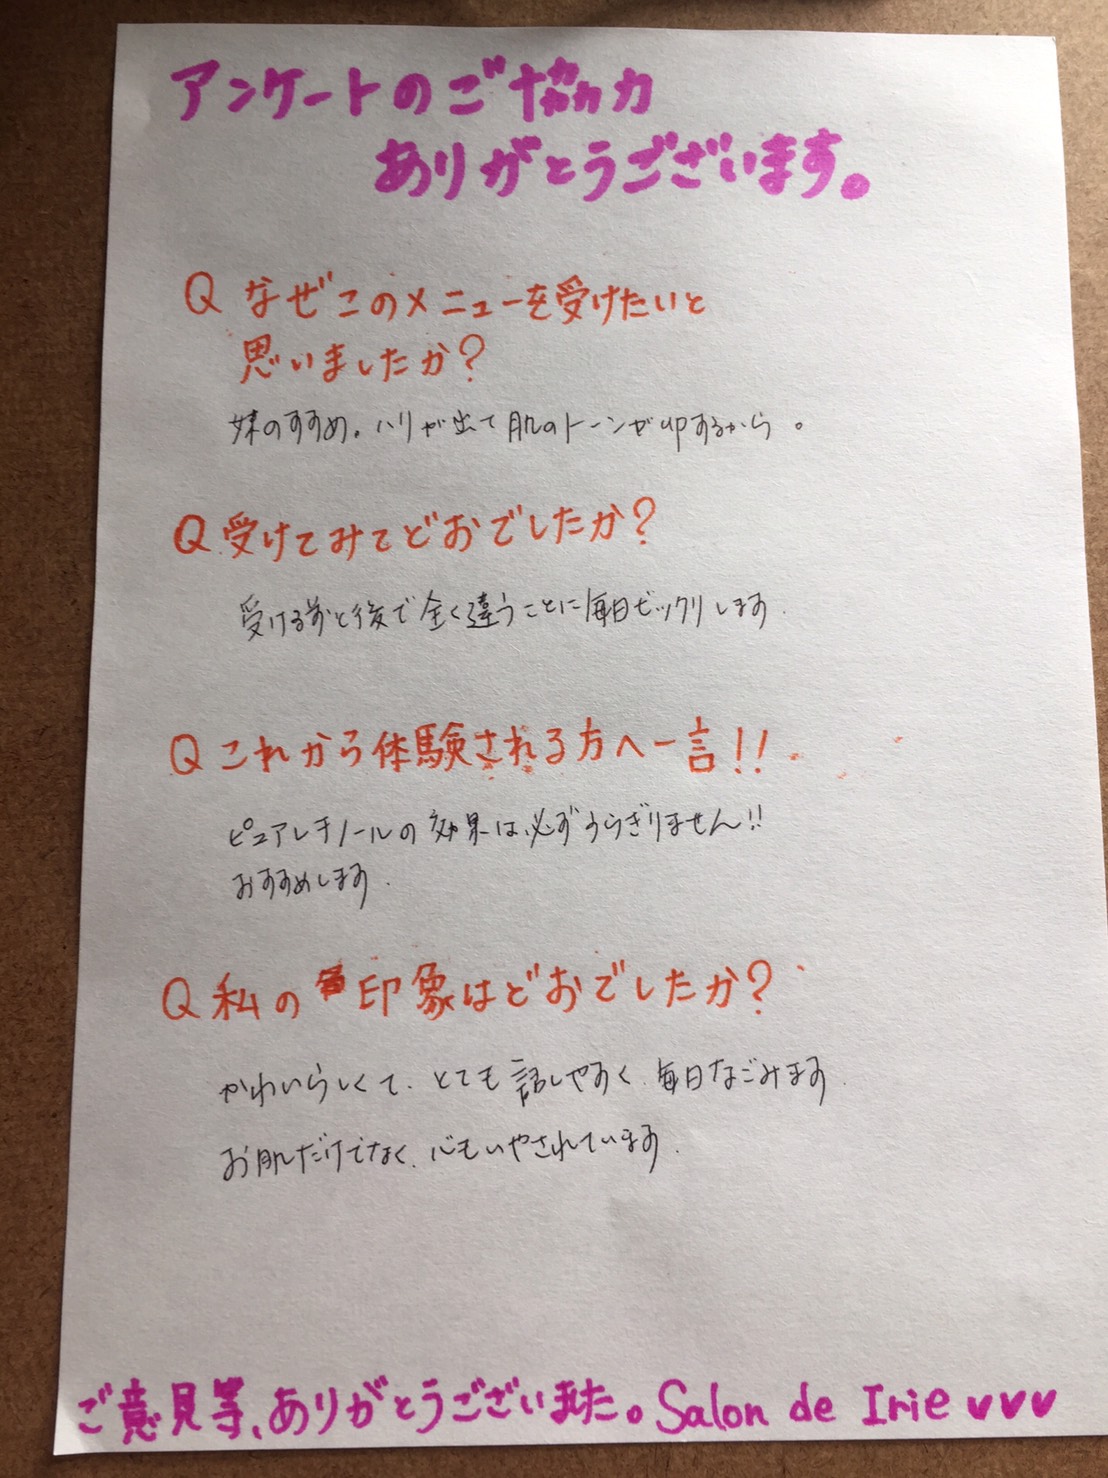 アンケートのご協力
ありがとうございます。
Q なぜこのメニューを受けたいと
思いましたか?
妹のすすめ。ハリが出て肌のトーンが卯するから。
Q 受けてみてどおでしたか?
受ける前と後で全く違うことに毎日ビックリします.
Q これから体験される方へ一言!!
ピュアレチノールの効果は必ずうらぎりません!!
おすすめします.
Q 私の印象はどおでしたか?
かわいらしくて、とても話しやすく、毎日なごみます.
お肌だけでなく、心もいやされています.
ご意見等、ありがとうございました。Salon de Irie ♥♥♥